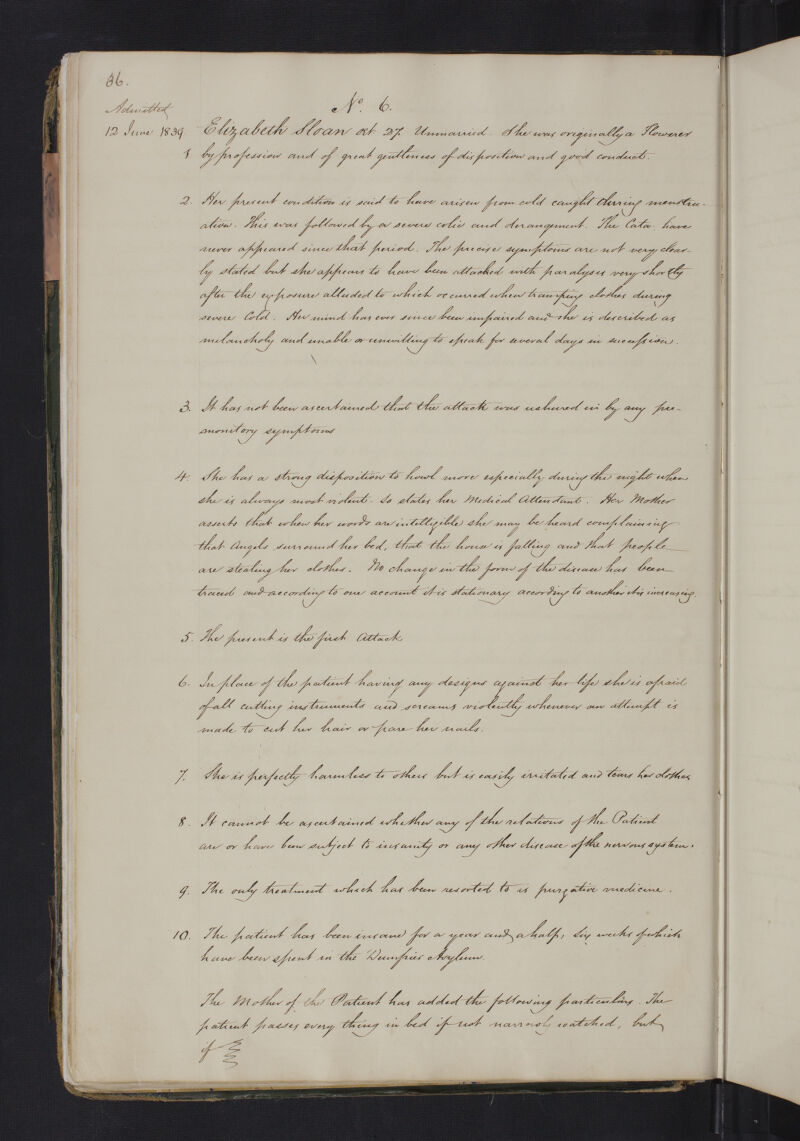 36.
Admitted
No. 6.
12 June 1839 Elizabeth Sloan æt 27 Unmarried. She was originally a Flowerer
1. by profession and of great gentleness of disposition and good conduct.
2. Her present condition is said to have arisen from cold caught during menstru-
ation. This was followed by a severe colic and derangement. The Cata. have
never appeared since that period. The precise symptoms are not very clear-
ly stated but she appears to have been attacked with paralysis very shortly
after the exposure alluded to which occurred when tramping clothes during
severe Cold. Her mind has ever since been impaired and she is described as
melancholy and unable or unwilling to speak for several days in succession.
3. It has not been ascertained that the attack was ushered in by any pre-
monitory symptoms
4. She has a strong disposition to howl more especially during the night when
she is always most violent. So states her Medical Attendant. Her Mother
asserts that when her words are intelligible she may be heard complaining
that Angels surround her bed, that the house is falling and that people
are stealing her clothes. No change in the form of the disease has been
traced and according to one account it is stationary according to another it is increasing.
5. The present is the first Attack
6. In place of the patient having any designs against her life she is afraid
of all cutting instruments and screams violently whenever an attempt is
made to cut her hair or pare her nails.
7. She is perfectly harmless to others but is easily irritated and tears her clothes
8. It cannot be ascertained whether any of the relations of the Patient
are or have been subject to insanity or any other disease of the nervous system.
9. The only treatment which has been resorted to is purgative medicine.
10. The patient has been insane for a year and a half, six weeks of which
have been spent in the Dumfries Asylum.
The Mother of the Patient has added the following particulars. The
patient passes every thing in bed if not narrowly watched, but
if